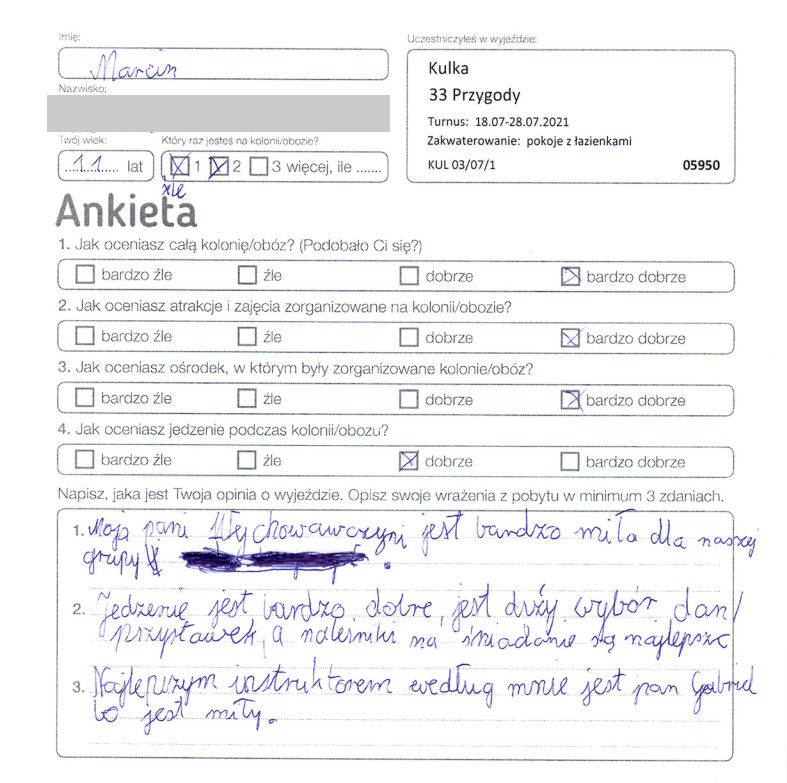 Imię:
Marcin
Nazwisko:
Twój wiek:
11 lat
Który raz jesteś na kolonii/obozie?
1 2 3 więcej, ile .......
źle
Uczestniczyłeś w wyjeździe:
Kulka
33 Przygody
Turnus: 18.07-28.07.2021
Zakwaterowanie: pokoje z łazienkami
KUL 03/07/1 05950
Ankieta
1. Jak oceniasz całą kolonię/obóz? (Podobało Ci się?)
bardzo źle źle dobrze bardzo dobrze
2. Jak oceniasz atrakcje i zajęcia zorganizowane na kolonii/obozie?
bardzo źle źle dobrze bardzo dobrze
3. Jak oceniasz ośrodek, w którym były zorganizowane kolonie/obóz?
bardzo źle źle dobrze bardzo dobrze
4. Jak oceniasz jedzenie podczas kolonii/obozu?
bardzo źle źle dobrze bardzo dobrze
Napisz, jaka jest Twoja opinia o wyjeździe. Opisz swoje wrażenia z pobytu w minimum 3 zdaniach.
1. Moja pani Wychowawczyni jest bardzo miła dla naszej
grupy .
2. Jedzenie jest bardzo dobre, jest duży wybór dań/
przystawek, a naleśniki na śniadanie są najlepsze
3. Najlepszym instruktorem według mnie jest pan Gabriel
bo jest miły.